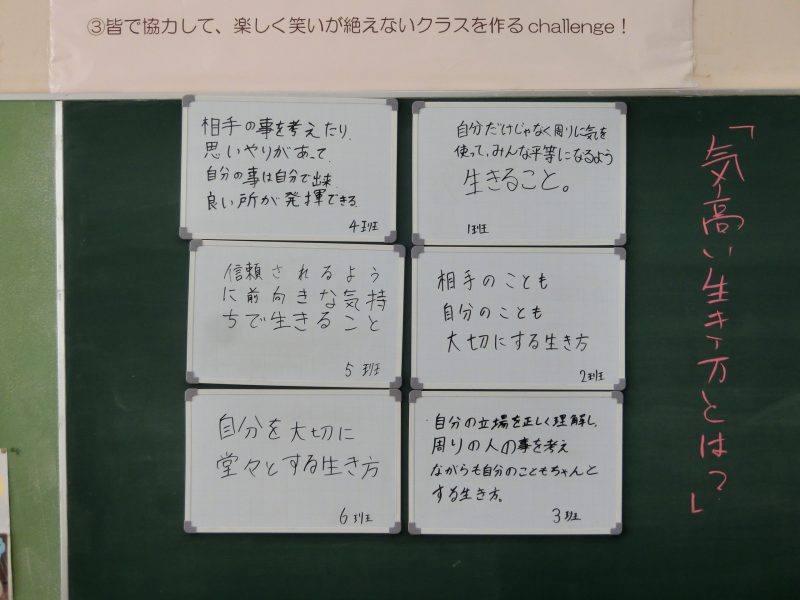 ③皆で協力して、楽しく笑いが絶えないクラスを作るchallenge！
「気高い生き方とは？」
自分だけじゃなく周りに気を
使って、みんな平等になるよう
生きること。
1班
相手のことも
自分のことも
大切にする生き方
2班
自分の立場を正しく理解し、
周りの人の事を考え
ながらも自分のこともちゃんと
する生き方。
3班
相手の事を考えたり、
思いやりがあって、
自分の事は自分で出来、
良い所が発揮できる。
4班
信頼されるよう
に前向きな気持
ちで生きること
5班
自分を大切に
堂々とする生き方
6班